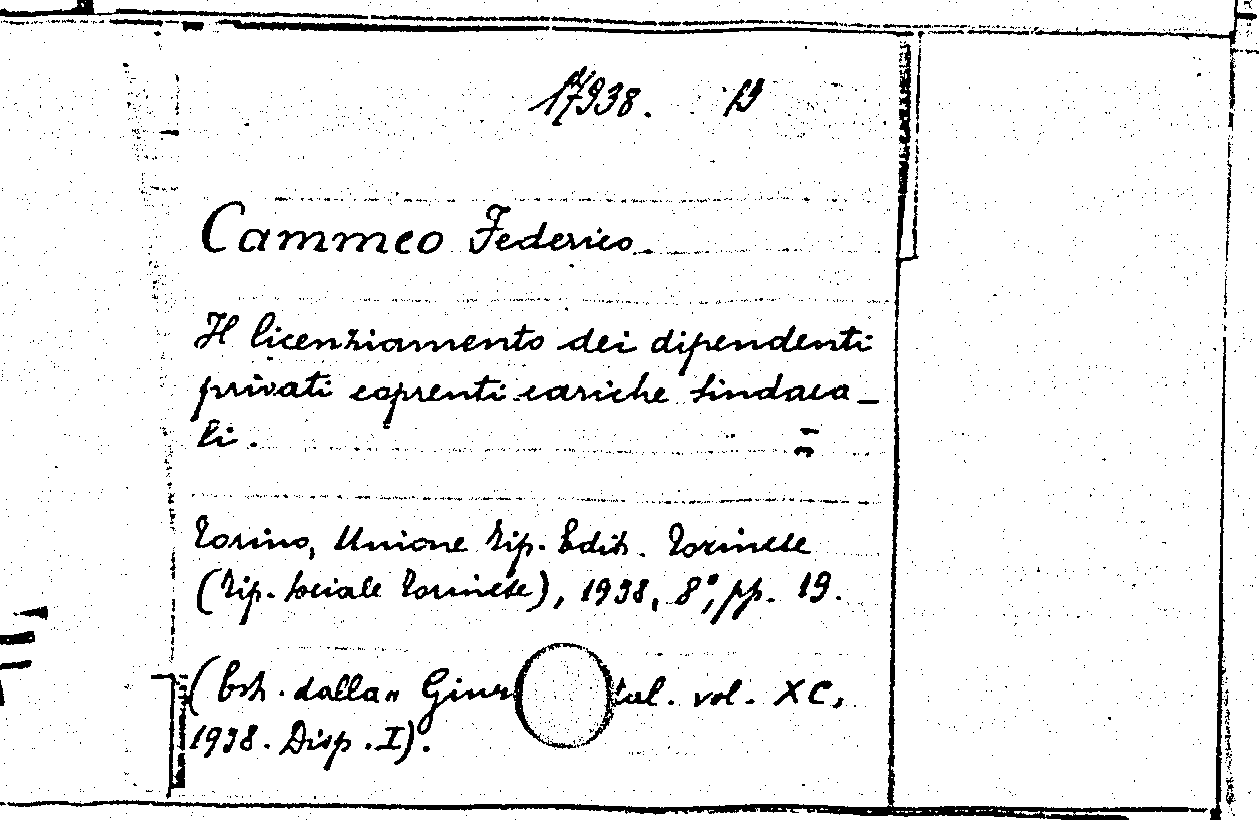 17938. 19
Cammeo Federico.
Il licenziamento dei dipendenti
privati coprenti cariche sindaca_
li.
Torino, Unione Tip. Edit. Torinese
(Tip. sociale Torinese), 1938, 8°, pp. 19.
(Estr. dalla " Giur tal. vol. XC,
1938. Disp. I).